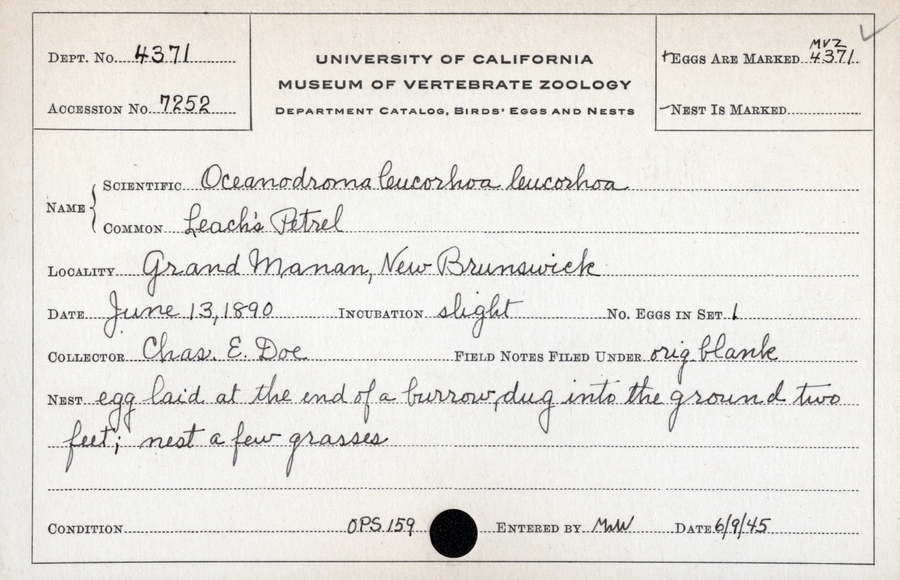 Dept. No. 4371
Accession No. 7252
UNIVERSITY OF CALIFORNIA
MUSEUM OF VERTEBRATE ZOOLOGY
Department Catalog, Birds' Eggs and Nests
MVZ
Eggs Are Marked 4371
Nest Is Marked
Name
Scientific Oceanodroma leucorhoa leucorhoa
Common Leach's Petrel
Locality Grand Manan, New Brunswick
Date June 13, 1890 Incubation slight No. Eggs in Set 1
Collector Chas. E. Doe Field Notes Filed Under orig blank
Nest egg laid at the end of a burrow, dug into the ground two
feet; nest a few grasses
Condition OPS 159 Entered by MWW Date 6/9/45